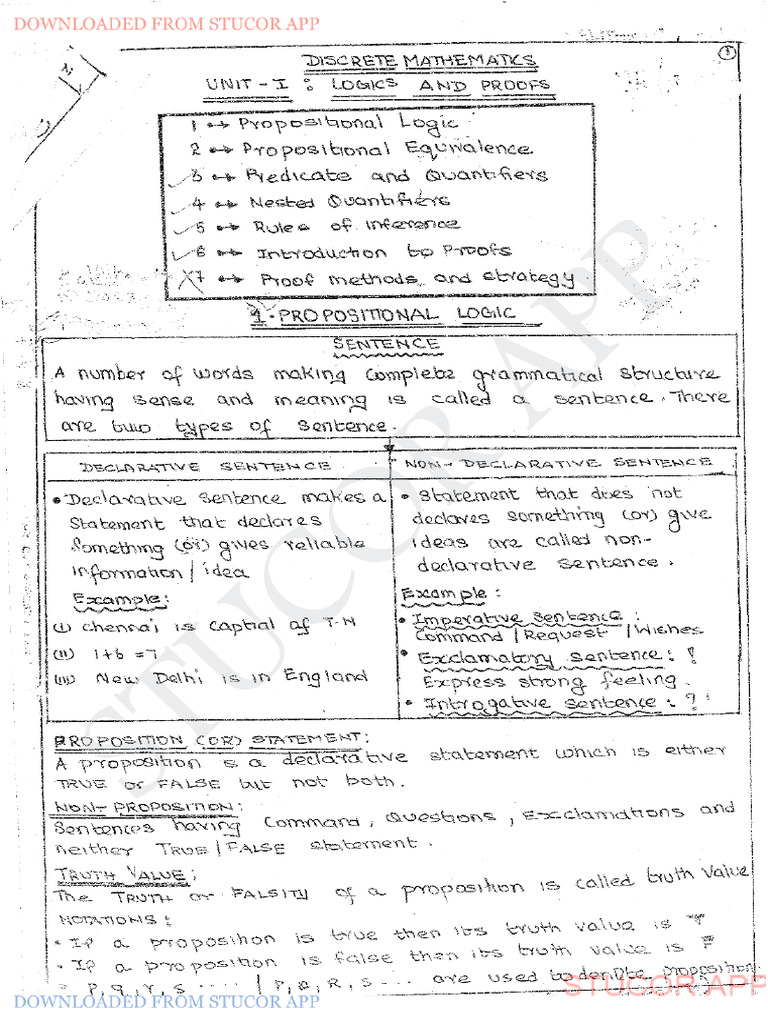 DOWNLOADED FROM STUCOR APP
1
DISCRETE MATHEMATICS
UNIT - I : LOGICS AND PROOFS
1 ↔ Propositional Logic
2 ↔ Propositional Equivalence
✓ 3 ↔ Predicate and Quantifiers
✓ 4 ↔ Nested Quantifiers
✓ 5 ↔ Rules of inference
✓ 6 ↔ Introduction to Proofs
X 7 ↔ Proof methods and strategy
1 - PROPOSITIONAL LOGIC
SENTENCE
A number of words making Complete grammatical structure
having sense and meaning is called a sentence. There
are two types of Sentence.
DECLARATIVE SENTENCE
• Declarative sentence makes a
statement that declares
Something (or) gives reliable
information / idea
Example:
(i) Chennai is captial of T.N
(ii) 1+6 =7
(iii) New Delhi is in England
NON-DECLARATIVE SENTENCE
• Statement that does not
declares something (or) give
ideas are called non-
declarative sentence.
Example :
• Imperative sentence :
Command / Request / Wishes
• Exclamatory sentence : !
Express strong feeling.
• Introgative sentence : ?
PROPOSITION (OR) STATEMENT:
A proposition is a declarative statement which is either
TRUE or FALSE but not both.
NON-PROPOSITION:
Sentences having Command, Questions, Exclamations and
neither TRUE / FALSE statement.
TRUTH VALUE:
The TRUTH or FALSITY of a proposition is called truth value
NOTATIONS:
• If a proposition is true then its truth value is T
• If a proposition is false then its truth value is F
= p, q, r, s ..... / P, Q, R, S ... are used to denote proposition.
STUCOR APP
DOWNLOADED FROM STUCOR APP
STUCOR APP